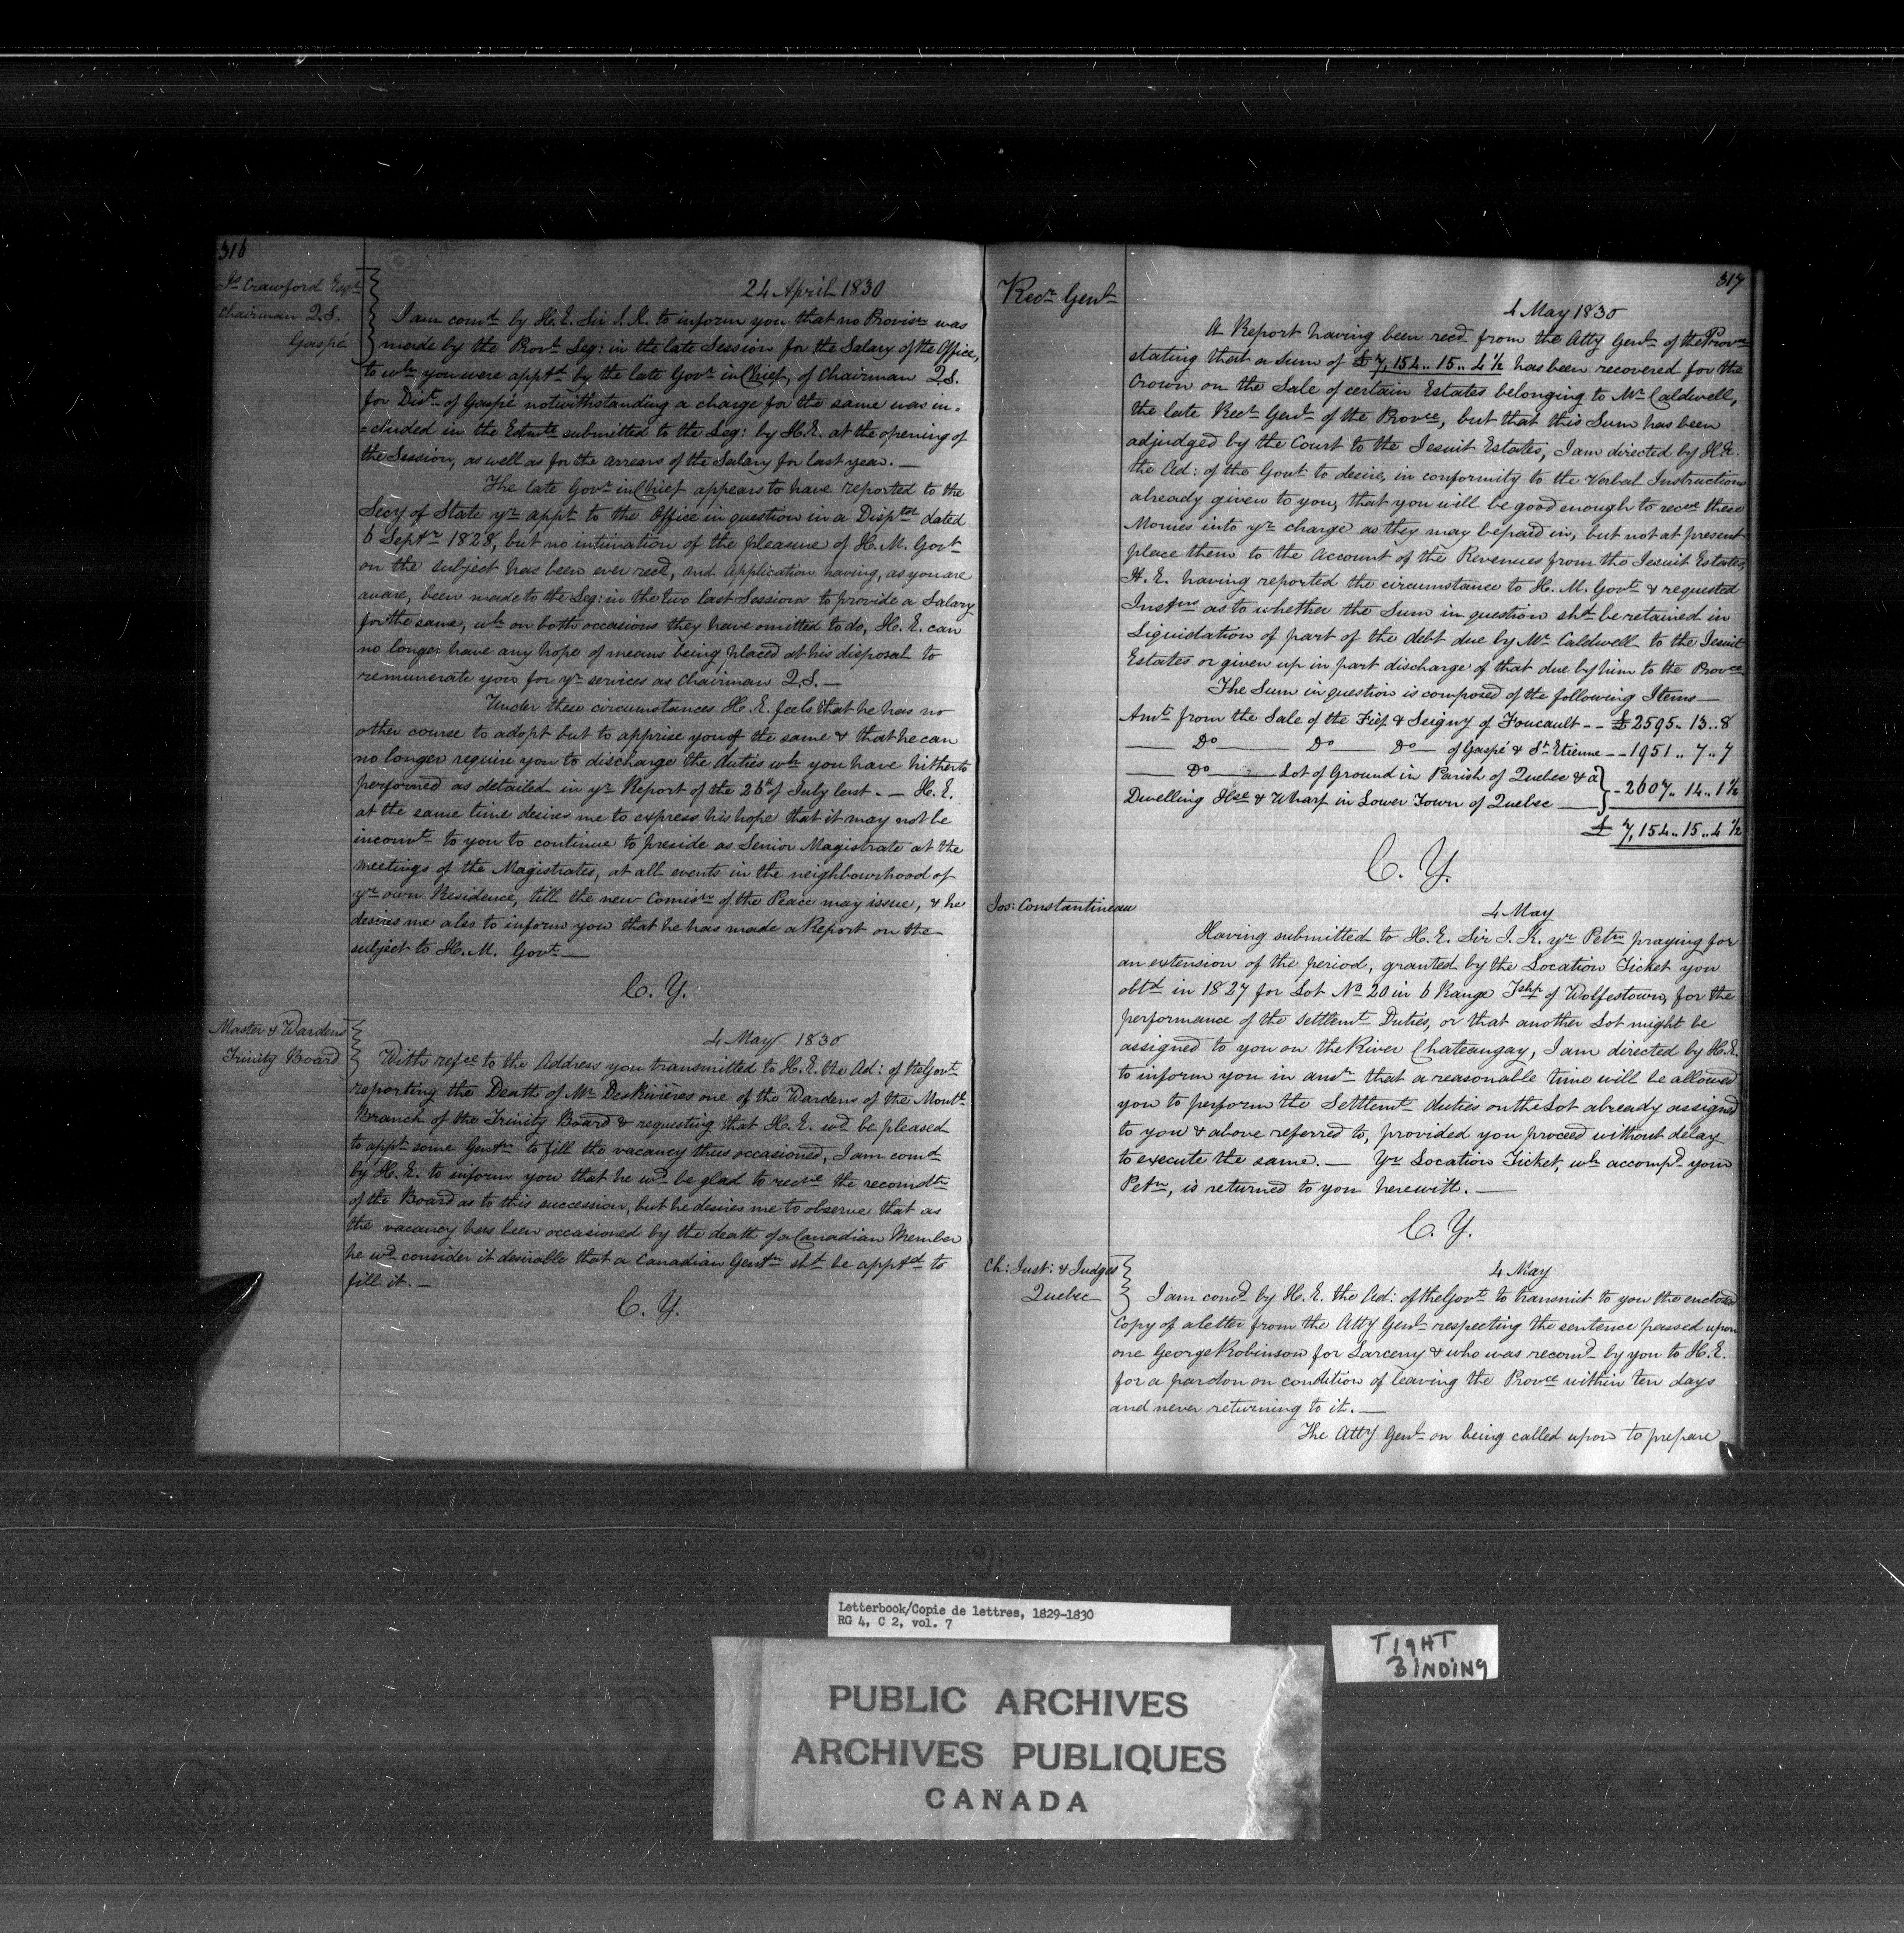 316
Js Crawford Esqr
Chairman Q.S.
Gaspé
24 April 1830
I am comd by H.E. Sir J.K. to inform you that no Provisn was
made by the Provl Leg: in the late Session for the Salary of the Office,
to wh you were apptd by the late Govr in Chief, of Chairman Q.S.
for Dist of Gaspé notwithstanding a charge for the same was in=
=cluded in the Estmte submitted to the Leg: by H.E. at the opening of
the Session, as well as for the arrears of the Salary for last year. —
The late Govr in Chief appears to have reported to the
Secy of State yr appt to the Office in question in a Disptch dated
6 Septr 1828, but no intimation of the pleasure of H.M. Govt
on the subject has been ever recd, and application having, as you are
aware, been made to the Leg: in the two last Sessions to provide a Salary
for the same, wh on both occasions they have omitted to do, H.E. can
no longer have any hope of means being placed at his disposal to
remunerate you for yr services as Chairman Q.S. —
Under these circumstances H.E. feels that he has no
other course to adopt but to apprise you of the same & that he can
no longer require you to discharge the duties wh you have hitherto
performed as detailed in yr Report of the 26th of July last. — H.E.
at the same time desires me to express his hope that it may not be
inconvt to you to continue to preside as Senior Magistrate at the
meetings of the Magistrates, at all events in the neighbourhood of
yr own Residence, till the new Comisn of the Peace may issue, & he
desires me also to inform you that he has made a Report on the
subject to H.M. Govt —
C.Y.
Master & Wardens
Trinity Board
4 May 1830
With refce to the Address you transmitted to H.E. the Ad: of the Govt
reporting the Death of Mr Des Rivières one of the Wardens of the Montl
Branch of the Trinity Board & requesting that H.E. wd be pleased
to appt some Gentn to fill the vacancy thus occasioned, I am comd
by H.E. to inform you that he wd be glad to recve the recomdtn
of the Board as to this succession, but he desires me to observe that as
the vacancy has been occasioned by the death of a Canadian Member
he wd consider it desirable that a Canadian Gentn shd be apptd to
fill it. —
C.Y.
317
Recr Genl
4 May 1830
A Report having been recd from the Atty Genl of the Provce
stating that a Sum of £7,154..15..4½ has been recovered for the
Crown on the Sale of certain Estates belonging to Mr Caldwell,
the late Recr Genl of the Provce, but that this Sum has been
adjudged by the Court to the Jesuit Estates, I am directed by H.E.
the Ad: of the Govt to desire, in conformity to the Verbal Instructions
already given to you, that you will be good enough to recve these
Monies into yr charge as they may be paid in, but not at present
place them to the Account of the Revenues from the Jesuit Estates,
H.E. having reported the circumstance to H.M. Govt & requested
Instrns as to whether the Sum in question shd be retained in
Liquidation of part of the debt due by Mr Caldwell to the Jesuit
Estates or given up in part discharge of that due by him to the Provce
The Sum in question is composed of the following Items —
Amt from the Sale of the Fief & Seigny of Foucault -- £2595..13..8
— Do — Do — Do — of Gaspé & St Etienne -- 1951..7..7
— Do — Lot of Ground in Parish of Quebec & a
Dwelling Hse & Wharf in Lower Town of Quebec — 2607..14..1½
£7,154..15..4½
C.Y.
Jos: Constantineau
4 May
Having submitted to H.E. Sir J.K. yr Petn praying for
an extension of the period, granted by the Location Ticket you
obtd in 1827 for Lot No 20 in 6 Range Tshp of Wolfestown, for the
performance of the settlemt Duties, or that another Lot might be
assigned to you on the River Chateaugay, I am directed by H.E.
to inform you in ansr that a reasonable time will be allowed
you to perform the Settlemt duties on the Lot already assigned
to you & above referred to, provided you proceed without delay
to execute the same. — Yr Location Ticket, wh accompd your
Petn, is returned to you herewith. —
C.Y.
Ch: Just: & Judges
Quebec
4 May
I am comd by H.E. the Ad: of the Govt to transmit to you the enclosed
Copy of a letter from the Atty Genl respecting the sentence passed upon
one George Robinson for Larceny & who was recomd by you to H.E.
for a pardon on condition of leaving the Provce within ten days
and never returning to it. —
The Atty Genl on being called upon to prepare
Letterbook/Copie de lettres, 1829-1830
RG 4, C 2, vol. 7
TIGHT
BINDING
PUBLIC ARCHIVES
ARCHIVES PUBLIQUES
CANADA